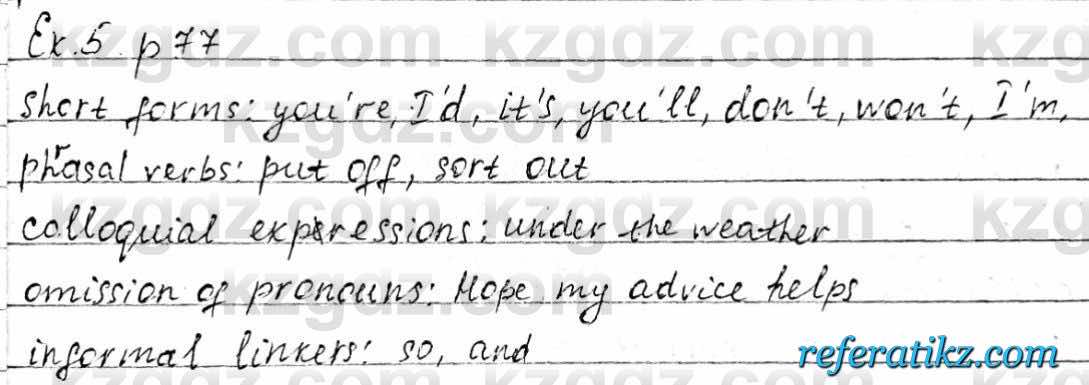 Ex. 5. p 77
short forms: you're, I'd, it's, you'll, don't, won't, I'm,
phrasal verbs: put off, sort out
colloquial expressions: under the weather
omission of pronouns: Hope my advice helps
informal linkers: so, and
referatikz.com
kzgdz.com